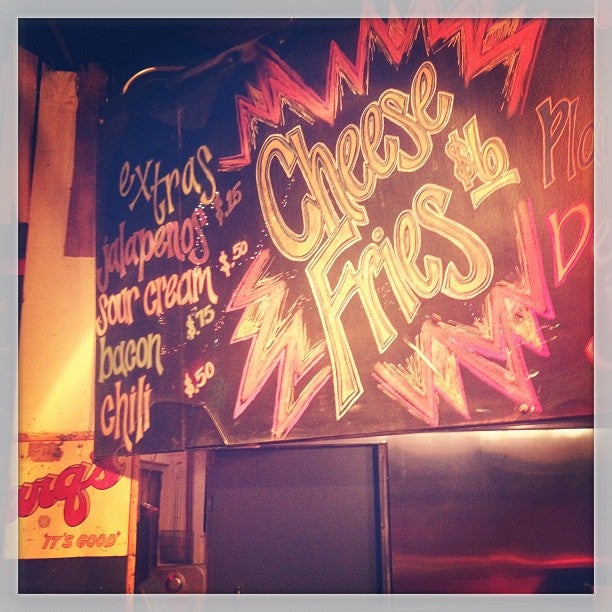 extras
jalapenos $.15
sour cream $.50
bacon $.75
chili $.50
Cheese
Fries $6
Pla
De
arqs
'IT'S GOOD'